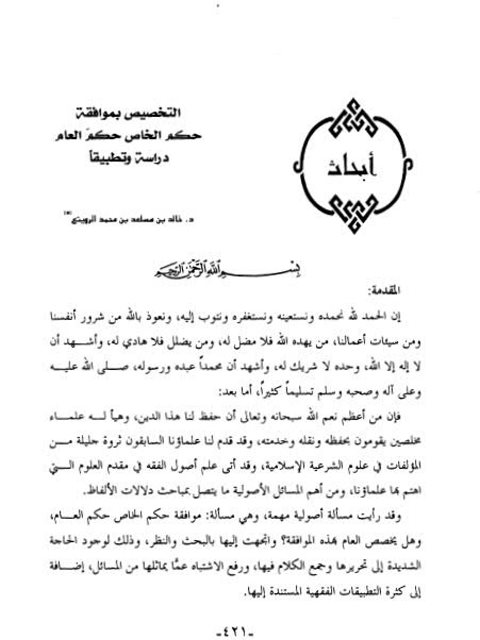 أبحاث
التخصيص بموافقة
حكم الخاص حكمَ العام
دراسة وتطبيقاً
د. خالد بن مساعد بن محمد الرويتع(*)
بسم الله الرحمن الرحيم
المقدمة:
إن الحمد لله نحمده ونستعينه ونستغفره ونتوب إليه، ونعوذ بالله من شرور أنفسنا
ومن سيئات أعمالنا، من يهده الله فلا مضل له، ومن يضلل فلا هادي له، وأشهد أن
لا إله إلا الله، وحده لا شريك له، وأشهد أن محمداً عبده ورسوله، صلى الله عليه
وعلى آله وصحبه وسلم تسليماً كثيراً، أما بعد:
فإن من أعظم نعم الله سبحانه وتعالى أن حفظ لنا هذا الدين، وهيأ له علماء
مخلصين يقومون بحفظه ونقله وخدمته، وقد قدم لنا علماؤنا السابقون ثروة جليلة من
المؤلفات في علوم الشرعية الإسلامية، وقد أتى علم أصول الفقه في مقدم العلوم التي
اهتم بها علماؤنا، ومن أهم المسائل الأصولية ما يتصل بمباحث دلالات الألفاظ.
وقد رأيت مسألة أصولية مهمة، وهي مسألة: موافقة حكم الخاص حكم العام،
وهل يخصص العام بهذه الموافقة؟ واتجهت إليها بالبحث والنظر، وذلك لوجود الحاجة
الشديدة إلى تحريرها وجمع الكلام فيها، ورفع الاشتباه عمَّا يماثلها من المسائل، إضافة
إلى كثرة التطبيقات الفقهية المستندة إليها.
-٤٢١-